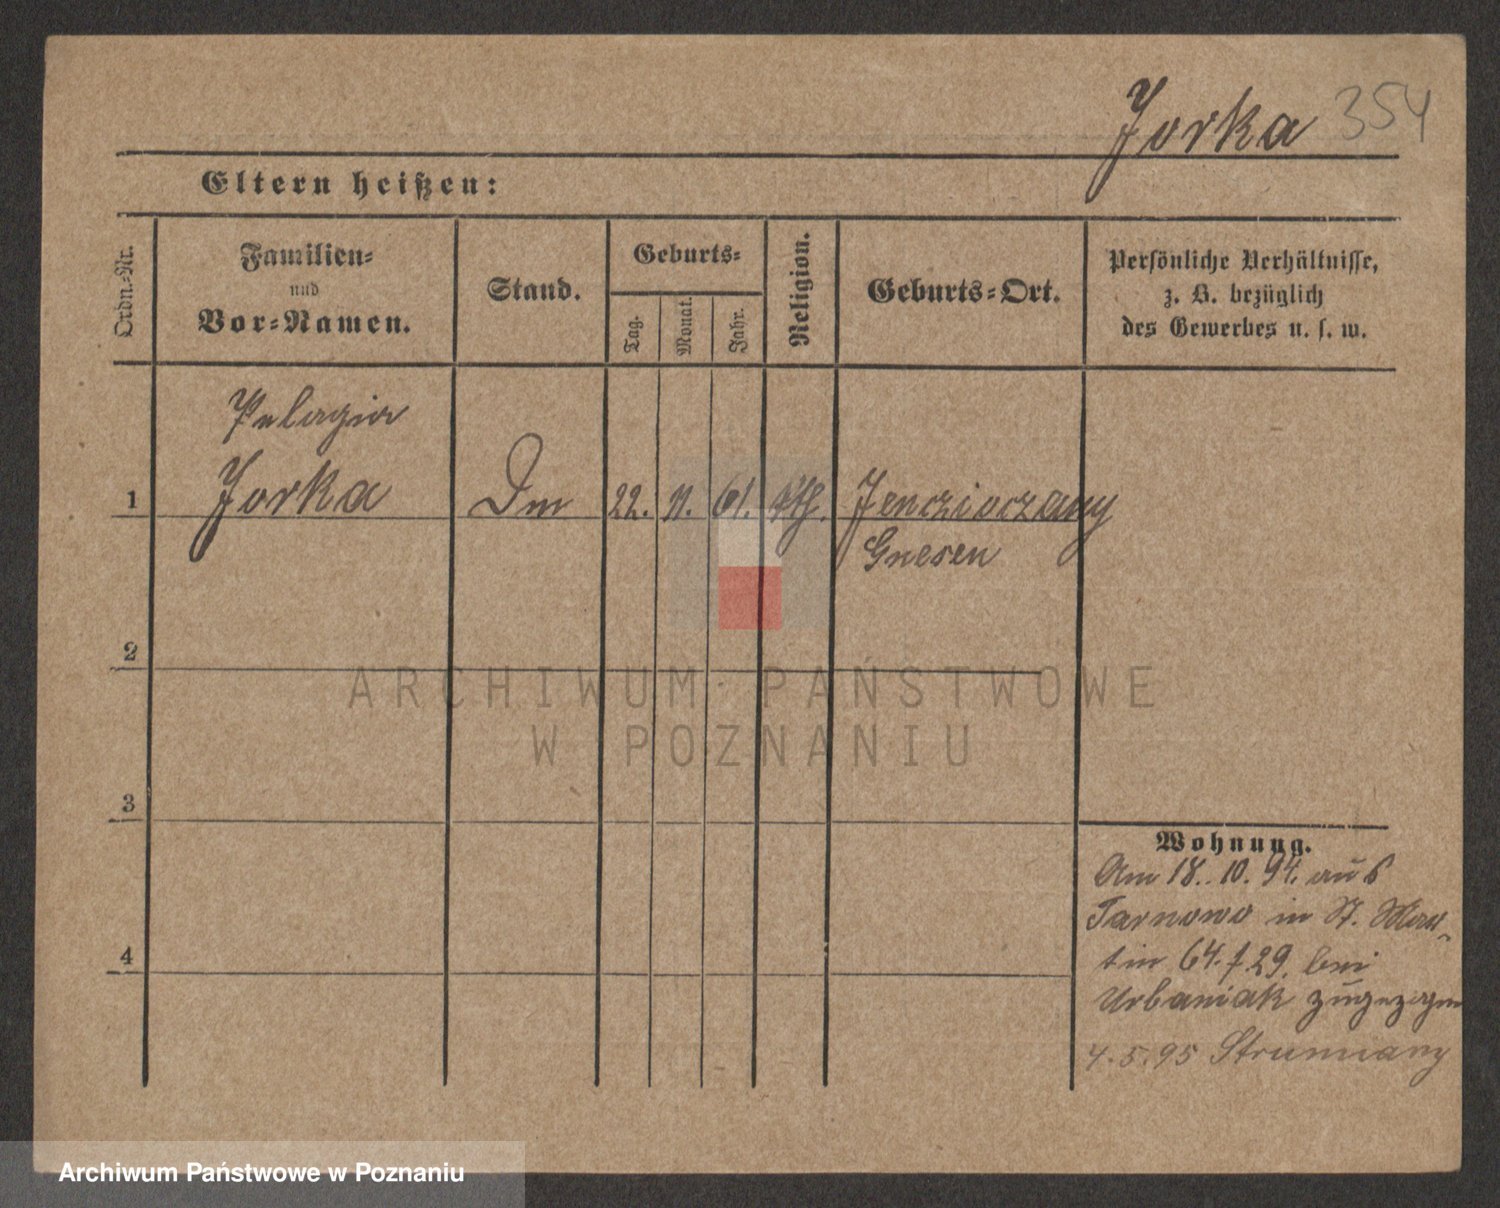 Jorka 354
Eltern heißen:
Ordn.-Nr.
Familien-
und
Vor-Namen.
Stand.
Geburts-
Tag.
Monat.
Jahr.
Religion.
Geburts-Ort.
Persönliche Verhältnisse,
z. B. bezüglich
des Gewerbes u. s. w.
Pelagia
1 Jorka 22. 11. 61. kth.
Gnesen
2
3
4
Wohnung.
Am 18. 10. 94. aus
Tarnowo in St. Mar-
tin 64. f 29. bei
Urbaniak zugezogen
4.5.95 Strumiany
ARCHIWUM PAŃSTWOWE
W POZNANIU
Archiwum Państwowe w Poznaniu